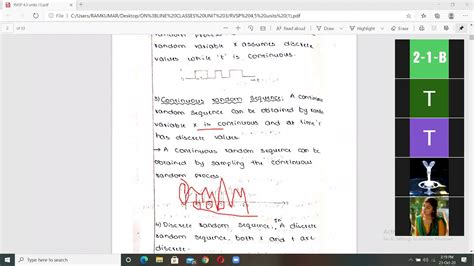 RVSP 4,5 units (1).pdf
File | C:/Users/RAMKUMAR/Desktop/ON%20LINE%20CLASSES%20UNIT%20I/RVSP%204,5%20units%20(1).pdf
random variable x assumes discrete
values while 't' is continuous.
3) Continuous Random Sequence: A continuous
random sequence can be obtained by
variable x is continuous and at time 't'
has discrete values.
→ A continuous random sequence can be
obtained by sampling the continuous
random process.
4) Discrete Random Sequence: A discrete
random sequence, both x and t are
discrete
2-1-B
T
T
Type here to search
2:19 PM
23-Oct-20